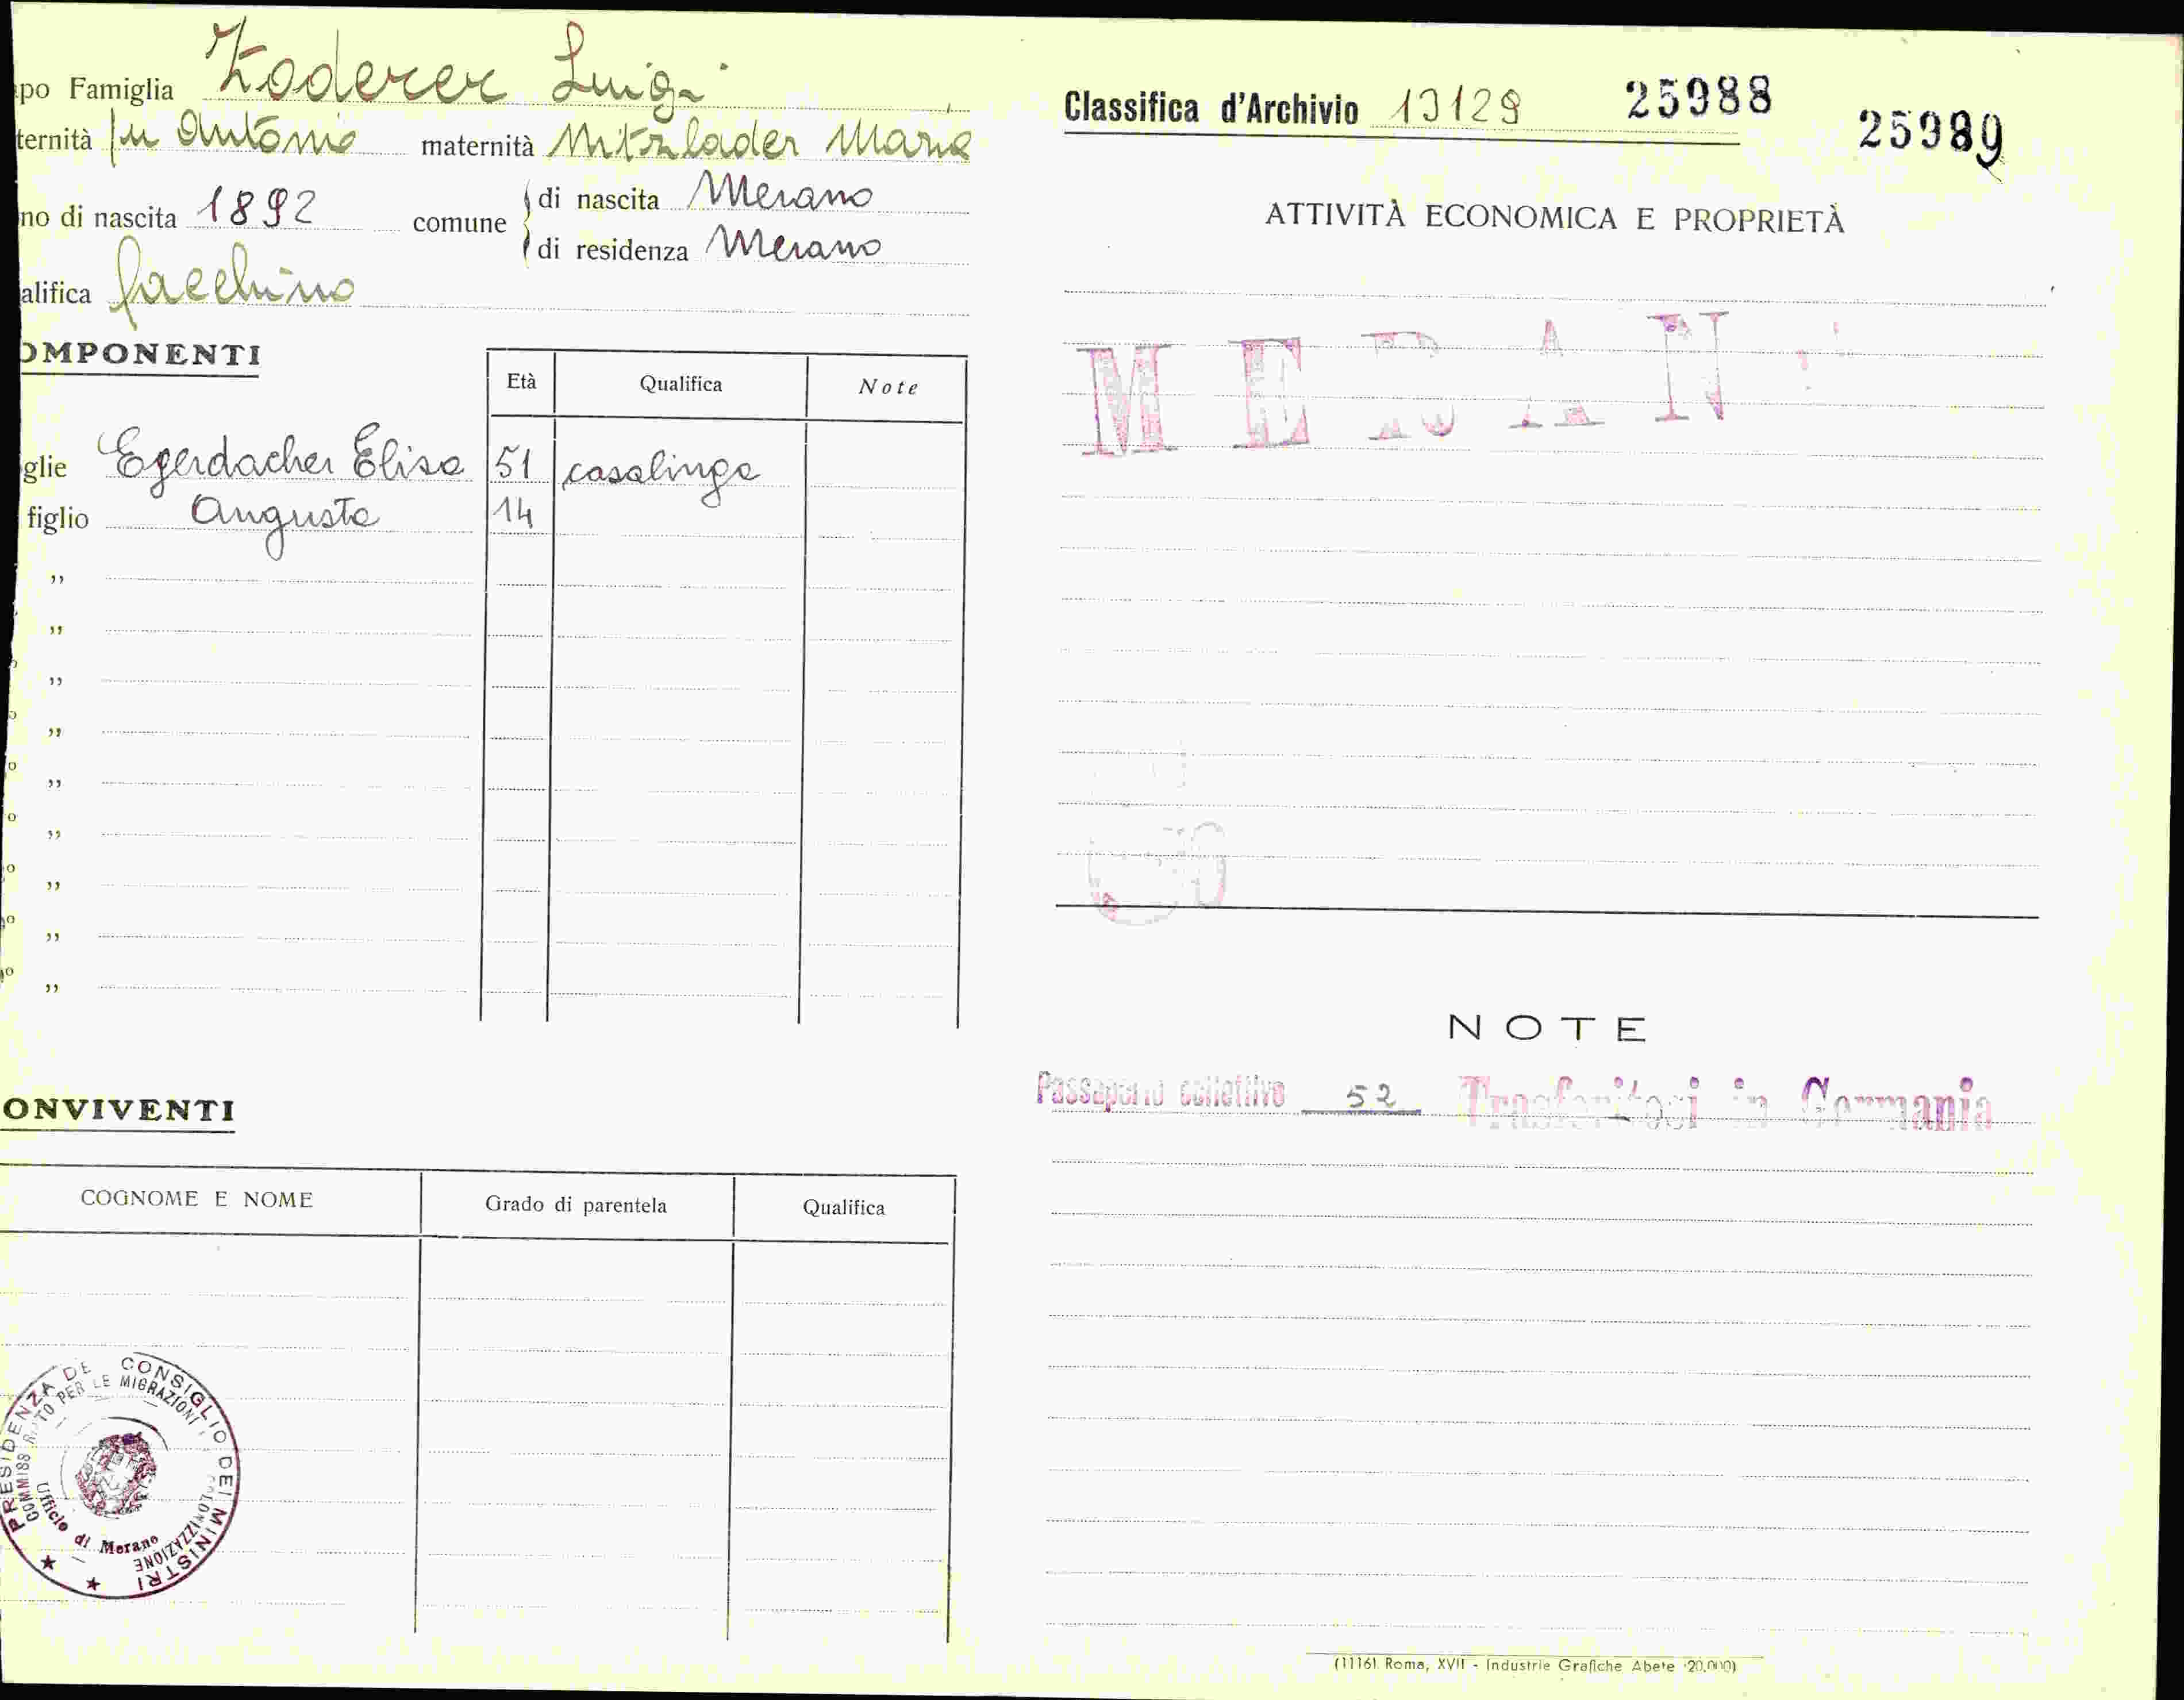 po Famiglia Zoderer Luigi
ternità fu Antonio maternità Mitzlader Maria
no di nascita 1892 comune di nascita Merano
di residenza Merano
alifica facchino
OMPONENTI
Età Qualifica Note
glie Egerdacher Elisa 51 casalinga
figlio Augusta 14
"
"
"
"
"
"
"
"
"
ONVIVENTI
COGNOME E NOME Grado di parentela Qualifica
PRESIDENZA DE CONSIGLIO DEI MINISTRI
PER LE MIGRAZIONI
Ufficio di Merano
Classifica d'Archivio 13129 25988
25989
ATTIVITÀ ECONOMICA E PROPRIETÀ
MERAN
NOTE
Passaporto collettivo 52 Trasferitosi in Germania
(1116) Roma, XVII - Industrie Grafiche Abete 20.000)